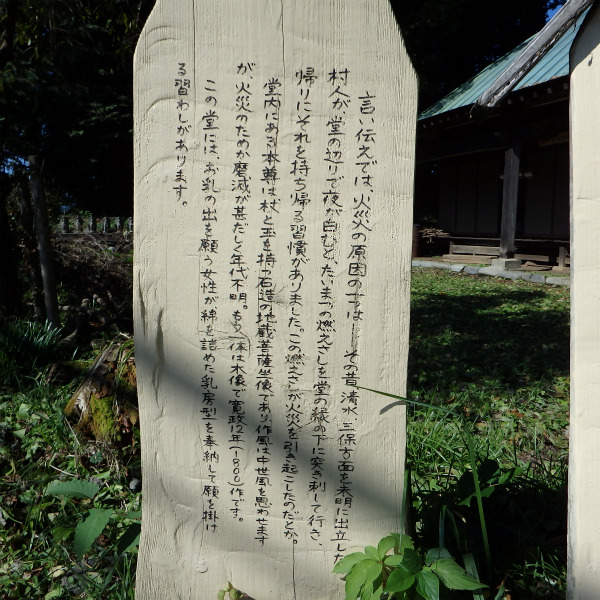 言い伝えでは、火災の原因の一つは――その昔清水、三保方面を未明に出立した
村人が、堂の辺りで夜が白むと、たいまつの燃えさしを堂の縁の下に突き刺して行き、
帰りにそれを持ち帰る習慣がありました。この燃えさしが火災を引き起こしたのだとか。
堂内にある本尊は杖と玉を持つ石造の地蔵菩薩坐像であり、作風は中世風を思わせます
が、火災のためか磨滅が甚だしく年代不明。もう一体は木像で寛政12年(1800)作です。
この堂には、お乳の出を願う女性が綿を詰めた乳房型を奉納して願を掛け
る習わしがあります。